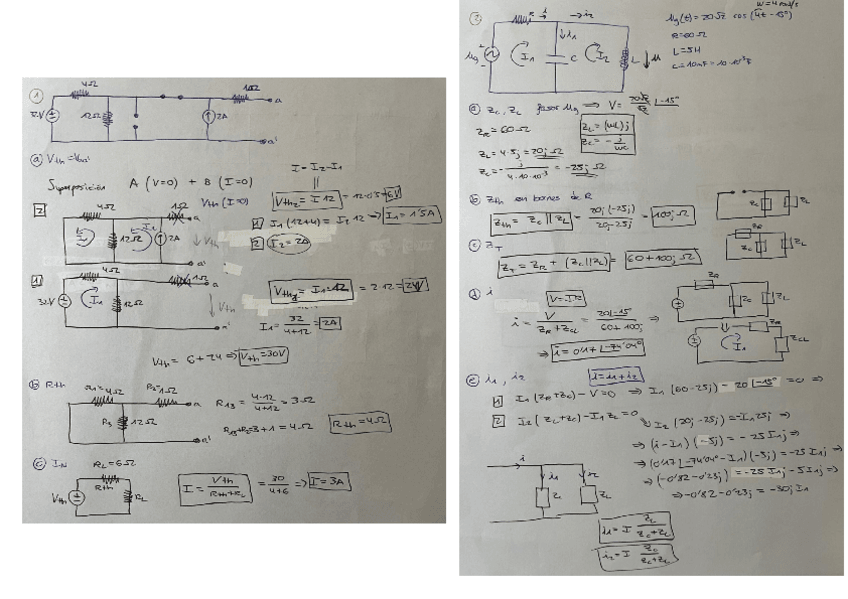 1
4Ω
1Ω
a
32V
12Ω
2A
a'
a) Vth = Vaa'
Superposición A (V=0) + B (I=0)
I = I2 - I1
2
4Ω
1Ω
a
Vth (I=0)
Vth2 = I 12 = 12·0'5 = 6V
12Ω
I1
2A
Vth
a'
1 I1 (12+4) = I2 12 => I1 = 1'5A
2 I2 = 2A
1
4Ω
1Ω
a
32V
I1
12Ω
Vth
a'
Vth1 = I1·12 = 2·12 = 24V
I1 = 32/(4+12) = 2A
Vth = 6 + 24 => Vth = 30V
b) Rth
R1=4Ω
R2=1Ω
a
R3
12Ω
a'
R13 = 4·12/(4+12) = 3Ω
R13+R2 = 3+1 = 4Ω
Rth = 4Ω
c) IN
RL = 6Ω
Vth
Rth
RL
I = Vth/(Rth+RL) = 30/(4+6) => I = 3A
2
i
i2
w = 4 rad/s
μg(t) = 20√2 cos (4t - 15°)
R = 60Ω
L = 5H
C = 10mF = 10·10⁻³F
μg
I1
i1
C
I2
L
μ
a) Zc, ZL fasor μg => V = 20√2/√2 |-15°
ZR = 60Ω
ZL = (wL)j
Zc = -j/wC
ZL = 4·5j = 20j Ω
Zc = -j/(4·10·10⁻³) = -25j Ω
b) Zth en bornes de R
Zth = Zc || ZL = 20j(-25j)/(20j-25j) = 100j Ω
Zc
ZL
c) ZT
ZT = ZR + (Zc||ZL) = 60+100j Ω
ZR
Zc
ZL
d) i
V=IZ
i = V/(ZR+ZCL) = 20|-15/(60+100j) =>
=> i = 0'17 |-74'04°
ZR
Zc
ZL
ZR
I1
ZCL
e) i1, i2
i = i1 + i2
1 I1 (ZR+Zc) - V = 0 => I1 (60-25j) - 20 |-15° = 0 =>
2 I2 (ZL+Zc) - I1 Zc = 0
I2 (20j-25j) = -I1 25j =>
=> (i-I1) (-5j) = -25 I1j =>
=> (0'17 |-74'04° - I1) (-5j) = -25 I1j
=> (-0'82-0'23j) = -25 I1j - 5 I1j =>
=> -0'82 - 0'23j = -30j I1
i
i1
i2
Zc
ZL
i1 = I ZL/(Zc+ZL)
i2 = I Zc/(Zc+ZL)